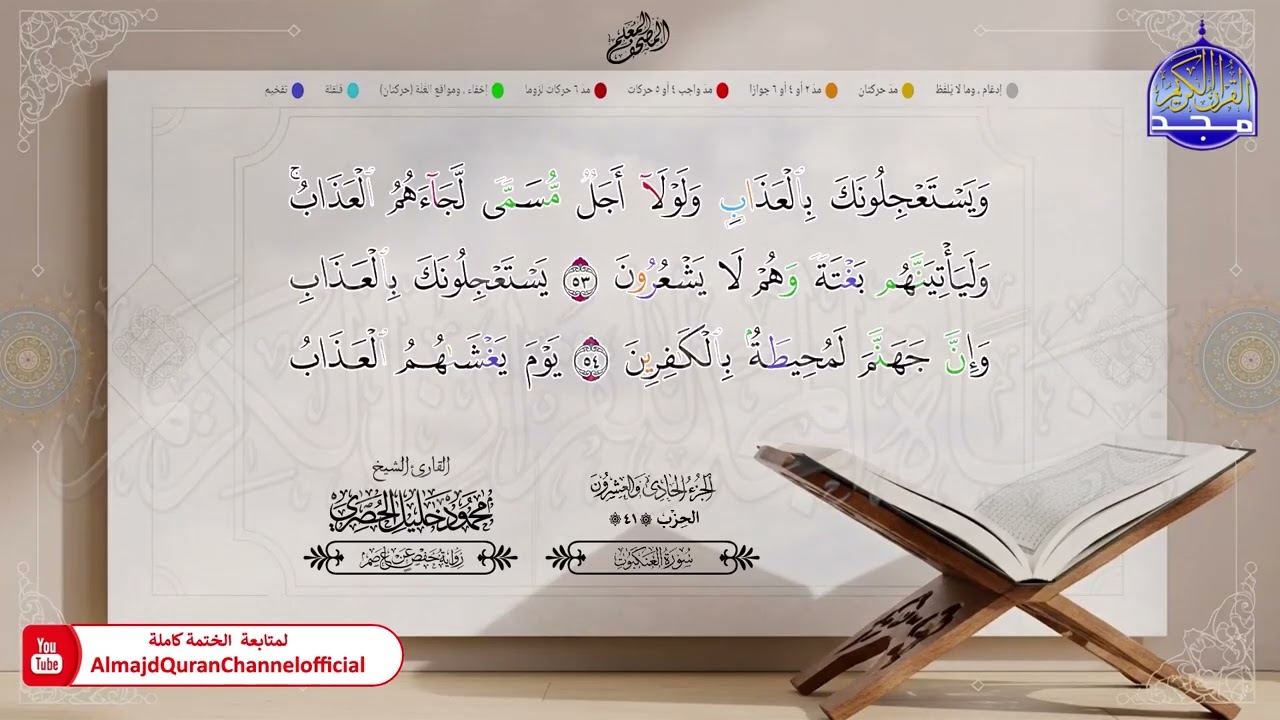 المصحف المعلم
القرآن الكريم
مجد
إدغام ، وما لا يُلفظ
مد حركتان
مد ٢ أو ٤ أو ٦ جوازا
مد واجب ٤ أو ٥ حركات
مد ٦ حركات لزوما
إخفاء ، ومواقع الغُنَّة (حركتان)
قلقلة
تفخيم
وَيَسْتَعْجِلُونَكَ بِٱلْعَذَابِ وَلَوْلَآ أَجَلٌ مُّسَمًّى لَّجَآءَهُمُ ٱلْعَذَابُۚ
وَلَيَأْتِيَنَّهُم بَغْتَةً وَهُمْ لَا يَشْعُرُونَ ٥٣ يَسْتَعْجِلُونَكَ بِٱلْعَذَابِ
وَإِنَّ جَهَنَّمَ لَمُحِيطَةٌۢ بِٱلْكَٰفِرِينَ ٥٤ يَوْمَ يَغْشَىٰهُمُ ٱلْعَذَابُ
الجزء الحادي والعشرون
الحزب ۞ ٤١ ۞
سورة العنكبوت
القارئ الشيخ
محمود خليل الحصري
رواية حفص عن عاصم
You
Tube
لمتابعة الختمة كاملة
AlmajdQuranChannelofficial